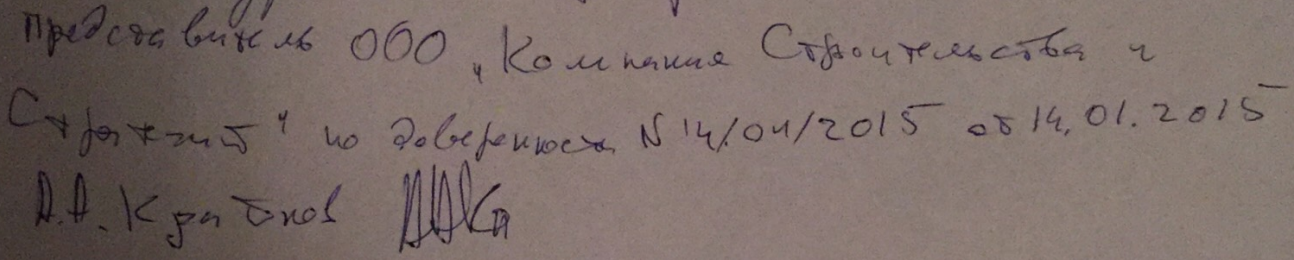 Представитель ООО „Компания Строительства и
по доверенности N 14/01/2015 от 14.01.2015
А.А.